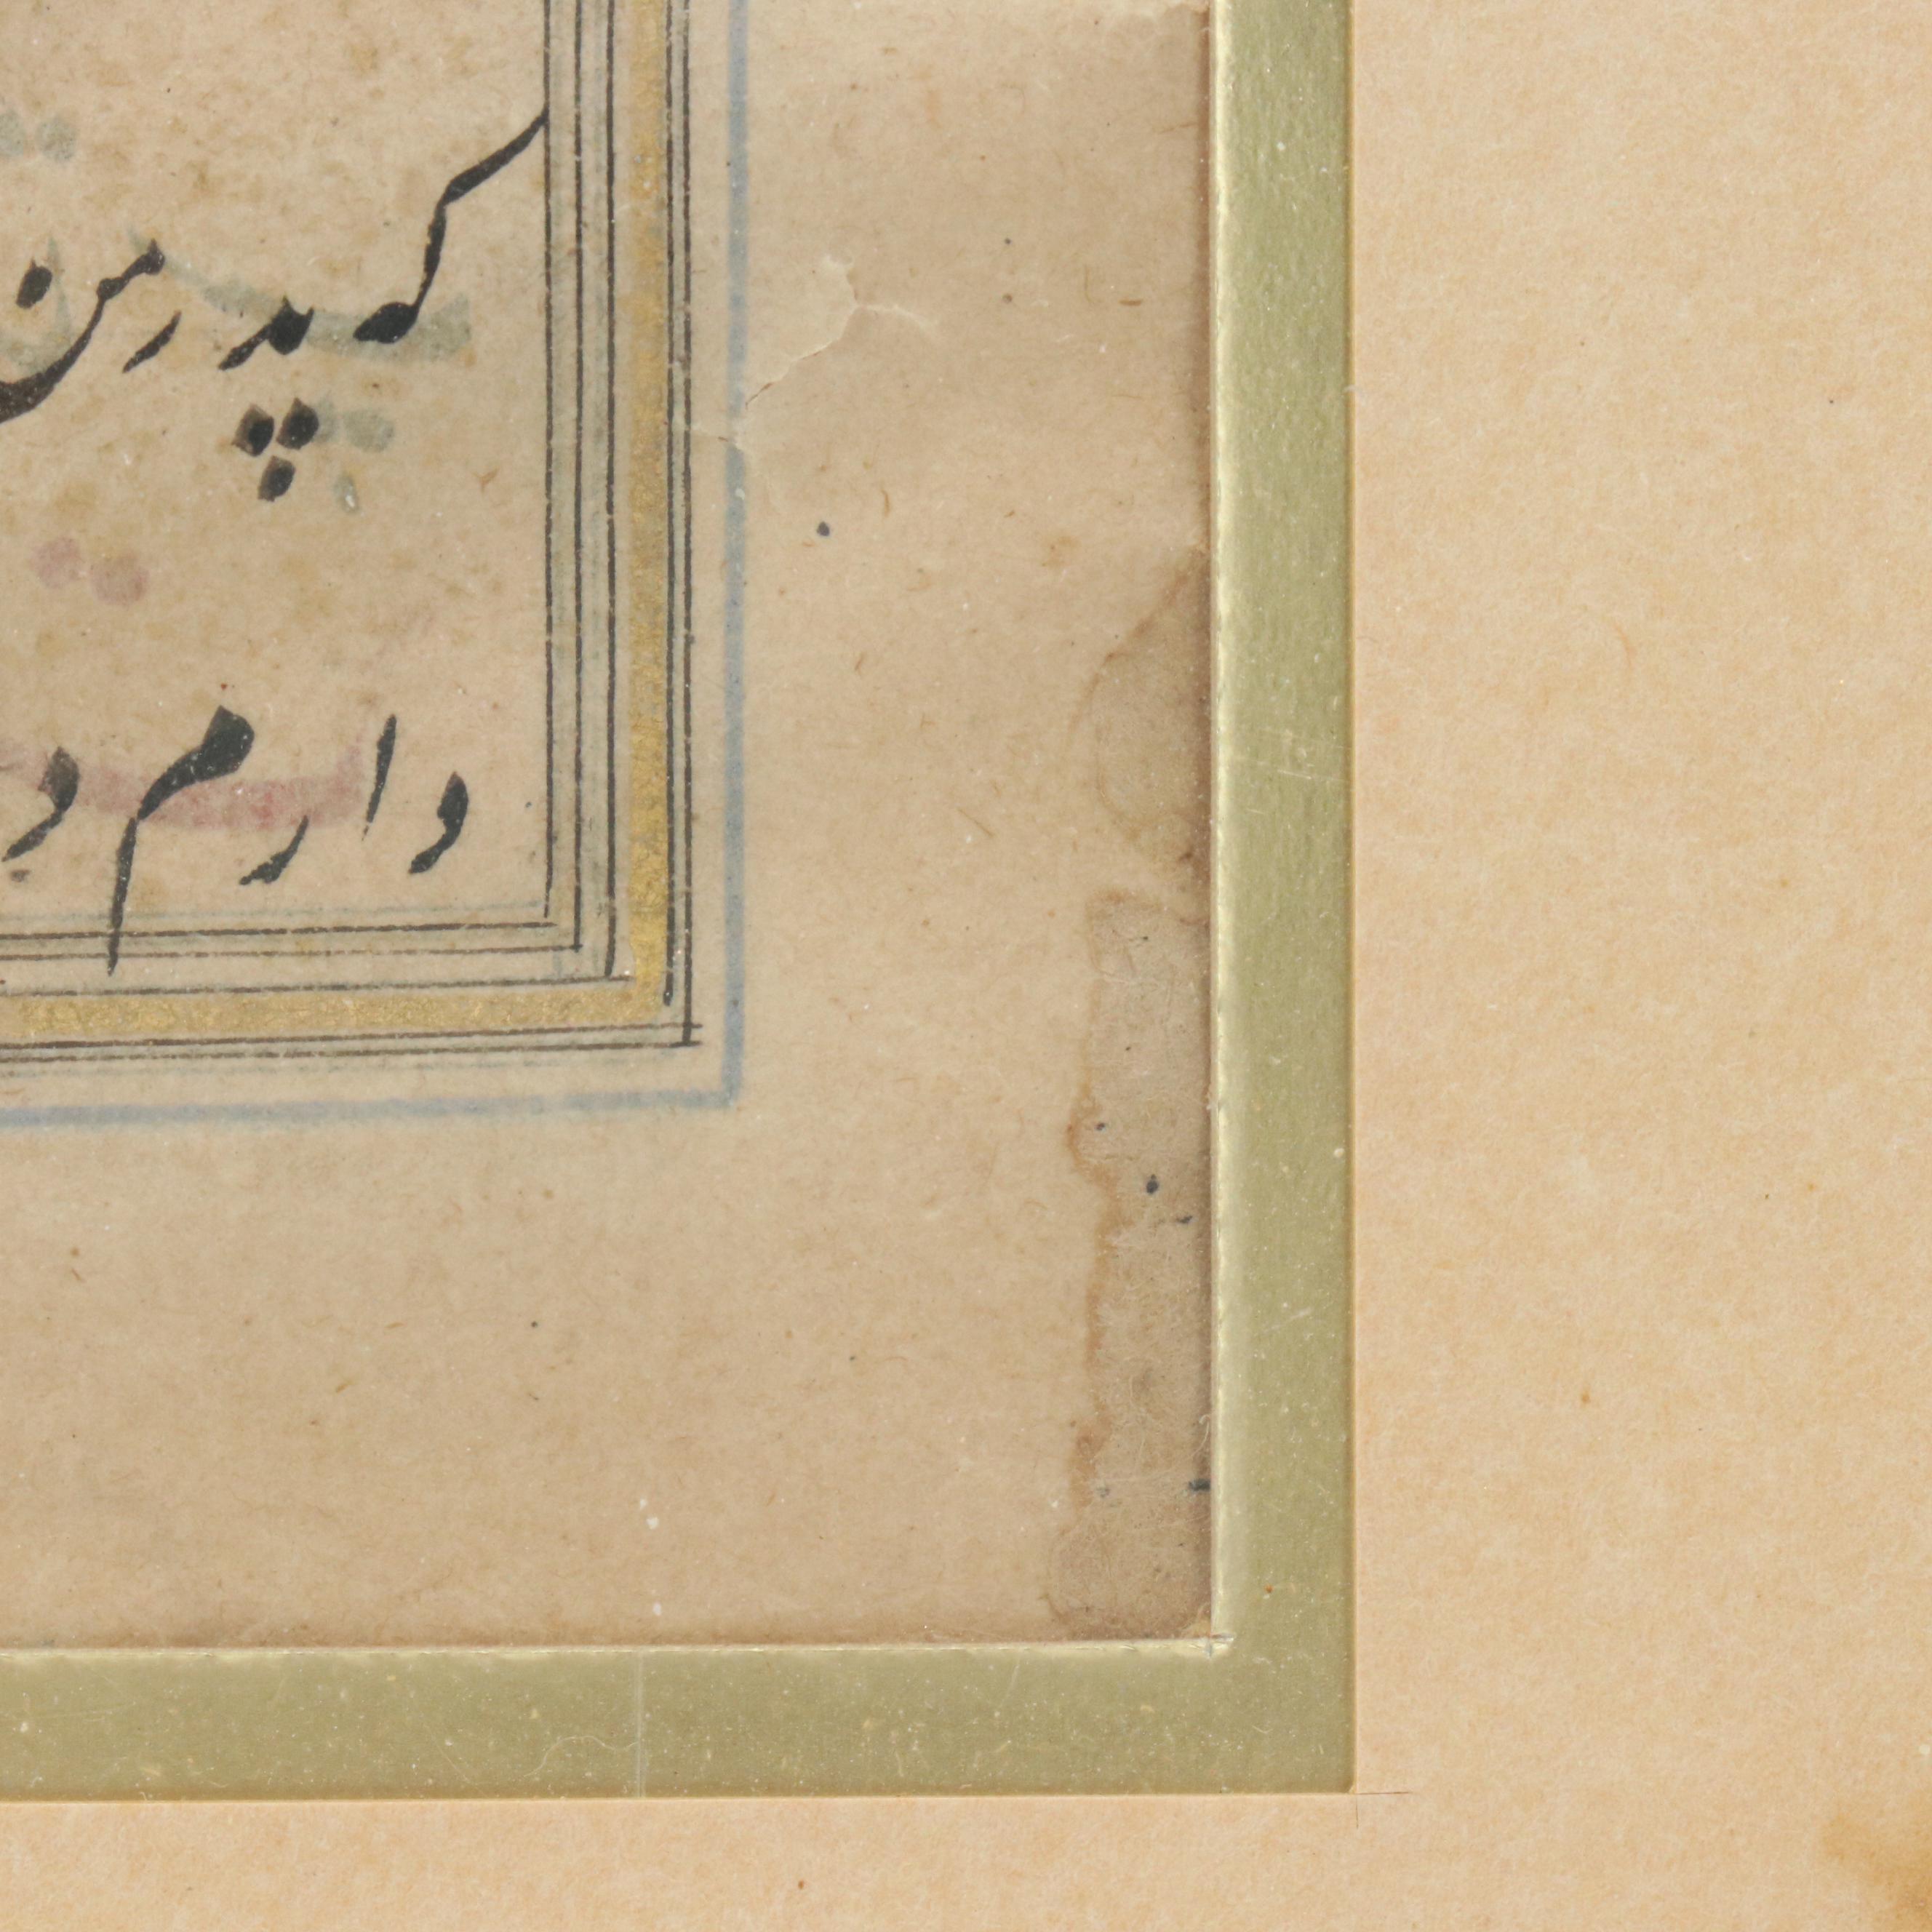 که پدر من
دارم